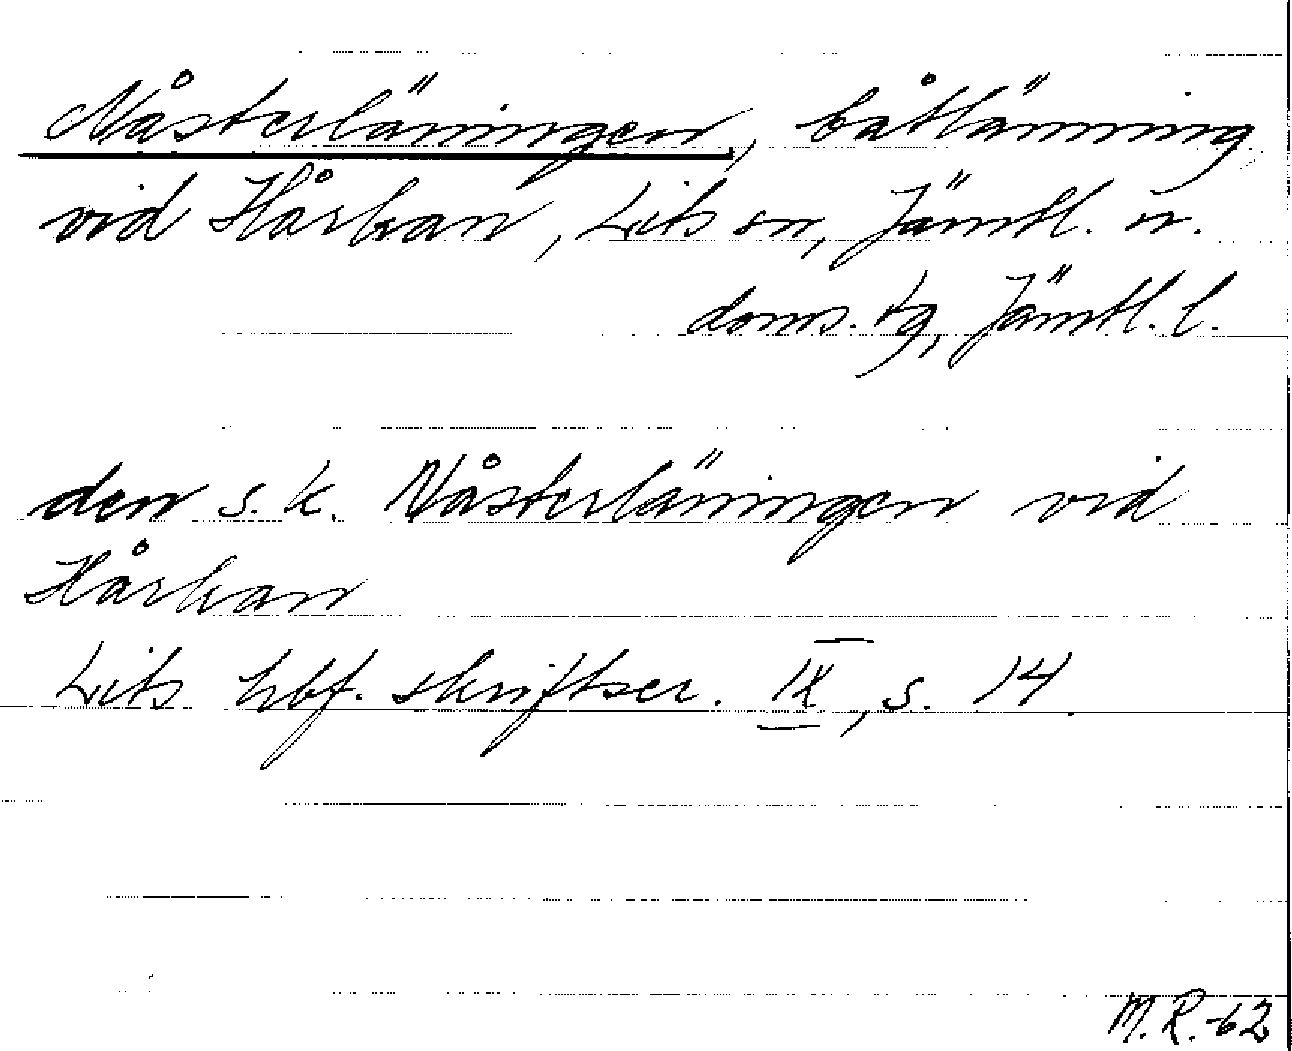 Nåsterläningen, båtlänning
vid Hårkan, Lits sn, Jämtl. n.
doms. tg, Jämtl. l.
den s.k. Nåsterläningen vid
Hårkan
Lits hbf. skriftser. IX, s. 14.
M.R.-62